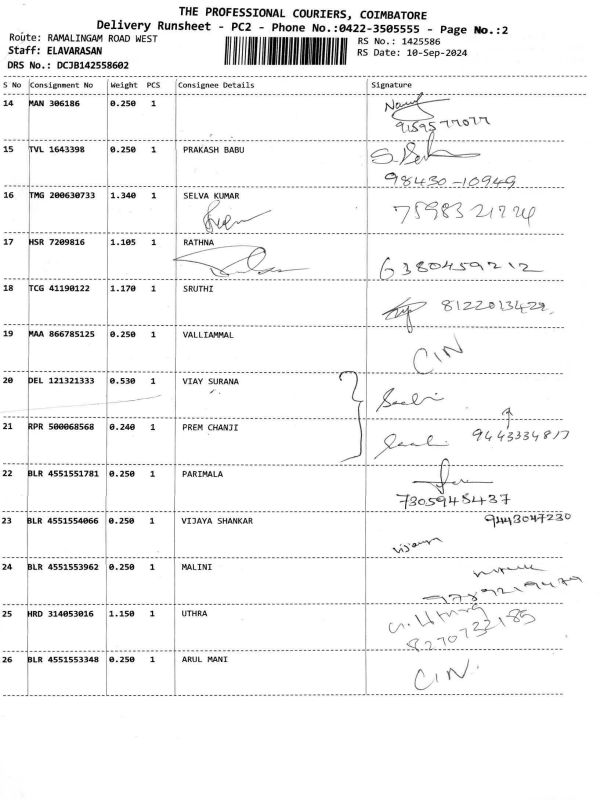 THE PROFESSIONAL COURIERS, COIMBATORE
Delivery Runsheet - PC2 - Phone No.:0422-3505555 - Page No.:2
Route: RAMALINGAM ROAD WEST
RS No.: 1425586
Staff: ELAVARASAN
RS Date: 10-Sep-2024
DRS No.: DCJB142558602
S No Consignment No Weight PCS Consignee Details Signature
14 MAN 306186 0.250 1
9159577077
15 TVL 1643398 0.250 1 PRAKASH BABU
98430-10949
16 TMG 200630733 1.340 1 SELVA KUMAR
17 HSR 7209816 1.105 1 RATHNA
6380459212
18 TCG 41190122 1.170 1 SRUTHI
8122013422
19 MAA 866785125 0.250 1 VALLIAMMAL
CIN
20 DEL 121321333 0.530 1 VIJAY SURANA
21 RPR 500068568 0.240 1 PREM CHANJI
9443334817
22 BLR 4551551781 0.250 1 PARIMALA
7305948437
23 BLR 4551554066 0.250 1 VIJAYA SHANKAR
9443047230
24 BLR 4551553962 0.250 1 MALINI
9789219479
25 HRD 314053016 1.150 1 UTHRA
8270732185
26 BLR 4551553348 0.250 1 ARUL MANI
CIN.